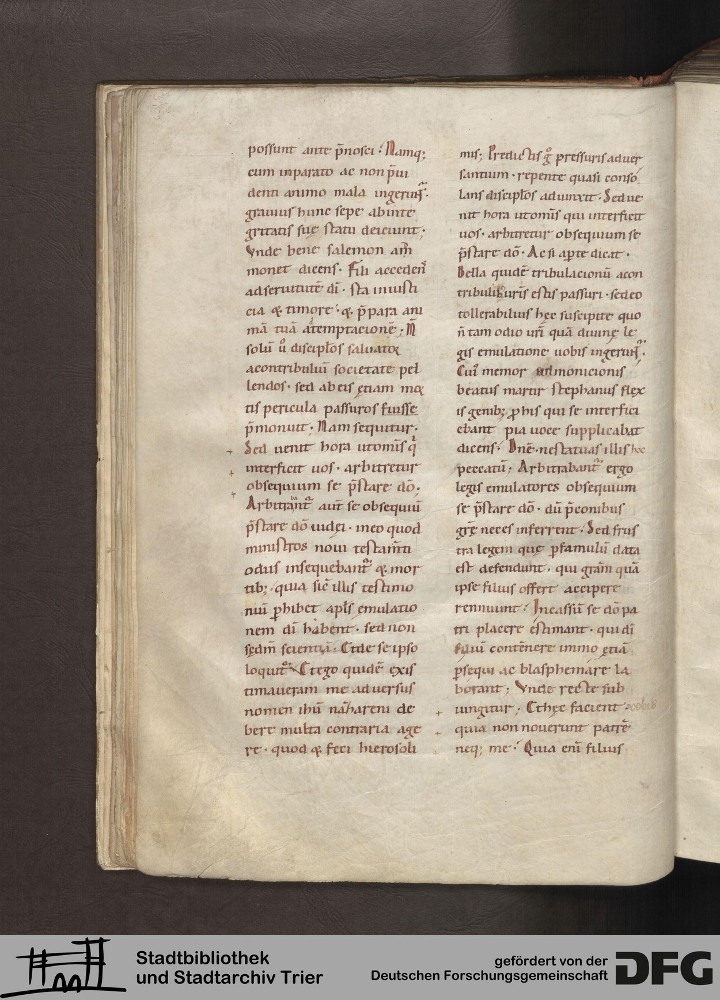 possunt ante p̄nosci. Namq;
cum inparato ac non p̄ui
denti animo mala ingerunt᷑.
grauius hunc sepe ab inte
gritatis sue statu deiciunt.
Vnde bene salemon am̄
monet dicens. Fili accedens̄
ad seruitutē di. sta in iusti
cia & timore. & p̄para ani
mā tuā ad temptacionē. N̄
solū u̓ discipłos saluator
a contribuliū societate pel
lendos. sed ab eis etiam mor
tis pericula passuros fuisse
p̄monuit. Nam sequitur.
Sed uenit hora ut omīs q̇
interficit uos. arbitretur
obsequium se p̄stare dō.
Arbitrant᷑ aut̄ se obsequiū
p̄stare dō iudei. in eo quod
ministros noui testam̄ti
odiis insequebant᷑ & mor
tib; quia sic̄ illis testimo
niū ꝑhibet apłs emulatio
nem di habent. sed non
sedm̄ scientiā. Et de se ipso
loquit᷑. Et ego quidē exis
timaueram me aduersus
nomen ihū nazareni de
bere multa contraria age
re. quod & feci hierosoli
mis; Predictis g̊ pressuris aduer
santium. repente quasi conso
lans discipłos adiunxit. Sed ue
nit hora ut omīs qui interficit
uos. arbitretur obsequium se
p̄stare dō. Ac si aꝑte dicat.
Bella quidē tribulacionū a con
tribulibus uris estis passuri. sed eo
tollerabilius hec suscipite quo
n̄ tam odio uri quā diuine le
gis emulatione uobis ingerunt᷑.
Cui memor admonicionis
beatus martir Stephanus flex
is genib; ꝓ his qui se interfici
ebant pia uoce supplicabat
dicens. Dnē. ne statuas illis hoc
peccatū; Arbitrabant᷑ ergo
legis emulatores obsequium
se p̄stare dō. dū p̄conibus
grē neces inferrent. Sed frus
tra legem que ꝑ famulū data
est defendunt. qui gram̄ quā
ipse filius offert accipere
rennuunt. Incassū se dō pa
tri placere estimant. qui di
filiū contēnere immo etiā
ꝑsequi ac blasphemare la
borant; Vnde recte sub
iungitur; Et hec facient uobis
quia non nouerunt patrē
neq; me. Quia enī filius
Stadtbibliothek
und Stadtarchiv Trier
gefördert von der
Deutschen Forschungsgemeinschaft
DFG